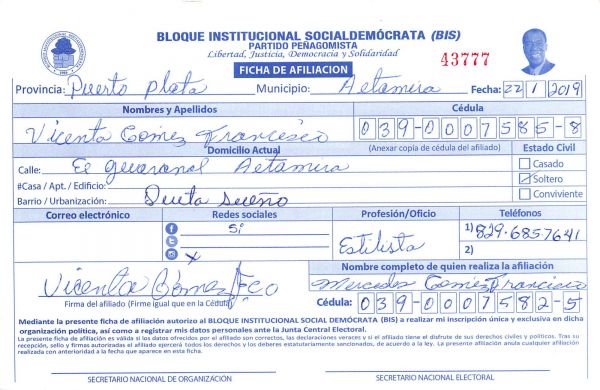 BLOQUE INSTITUCIONAL SOCIALDEMÓCRATA (BIS)
PARTIDO PEÑAGOMISTA
Libertad, Justicia, Democracia y Solidaridad
43777
FICHA DE AFILIACION
Provincia: Puerto Plata Municipio: Altamira Fecha: 22/1/2019
Nombres y Apellidos Cédula
Vicenta Gomez Francisco 039-0007585-8
Domicilio Actual (Anexar copia de cédula del afiliado) Estado Civil
Calle: El guaranal Altamira Casado
#Casa / Apt. / Edificio: Soltero
Barrio / Urbanización: Quita Sueño Conviviente
Correo electrónico Redes sociales Profesión/Oficio Teléfonos
Si 1) 829-685-7641
Estilista 2)
x
Nombre completo de quien realiza la afiliación
Vicenta Gomez Fco Mercedes Gomez Francisco
Firma del afiliado (Firme igual que en la Cédula) Cédula: 039-0007582-5
Mediante la presente ficha de afiliación autorizo al BLOQUE INSTITUCIONAL SOCIAL DEMÓCRATA (BIS) a realizar mi inscripción única y exclusiva en dicha
organización política, así como a registrar mis datos personales ante la Junta Central Electoral.
La presente ficha de afiliación es válida si los datos ofrecidos por el afiliado son correctos, las declaraciones veraces y si el afiliado tiene el disfrute de sus derechos civiles y políticos. Tras su
recepción, sello y firmas autorizadas el afiliado ejercerá todos los derechos y los deberes estatutariamente sancionados, de acuerdo a la ley. La presente afiliación anula cualquier afiliación
realizada con anterioridad a la fecha que aparece en esta ficha.
SECRETARIO NACIONAL DE ORGANIZACIÓN SECRETARIO NACIONAL ELECTORAL